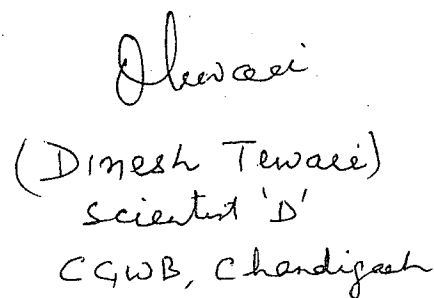 DTewari
(Dinesh Tewari)
Scientist 'D'
CGWB, Chandigarh